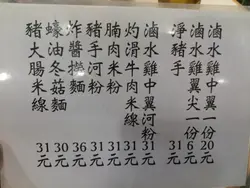 滷水雞中翼一份 20元
滷水雞翼尖一份 6元
淨豬手 31元
滷水雞中翼河粉 31元
灼滑牛肉米線 31元
腩肉米粉 31元
豬手河粉 31元
炸醬撈麵 36元
蠔油冬菇麵 30元
豬大腸米線 31元